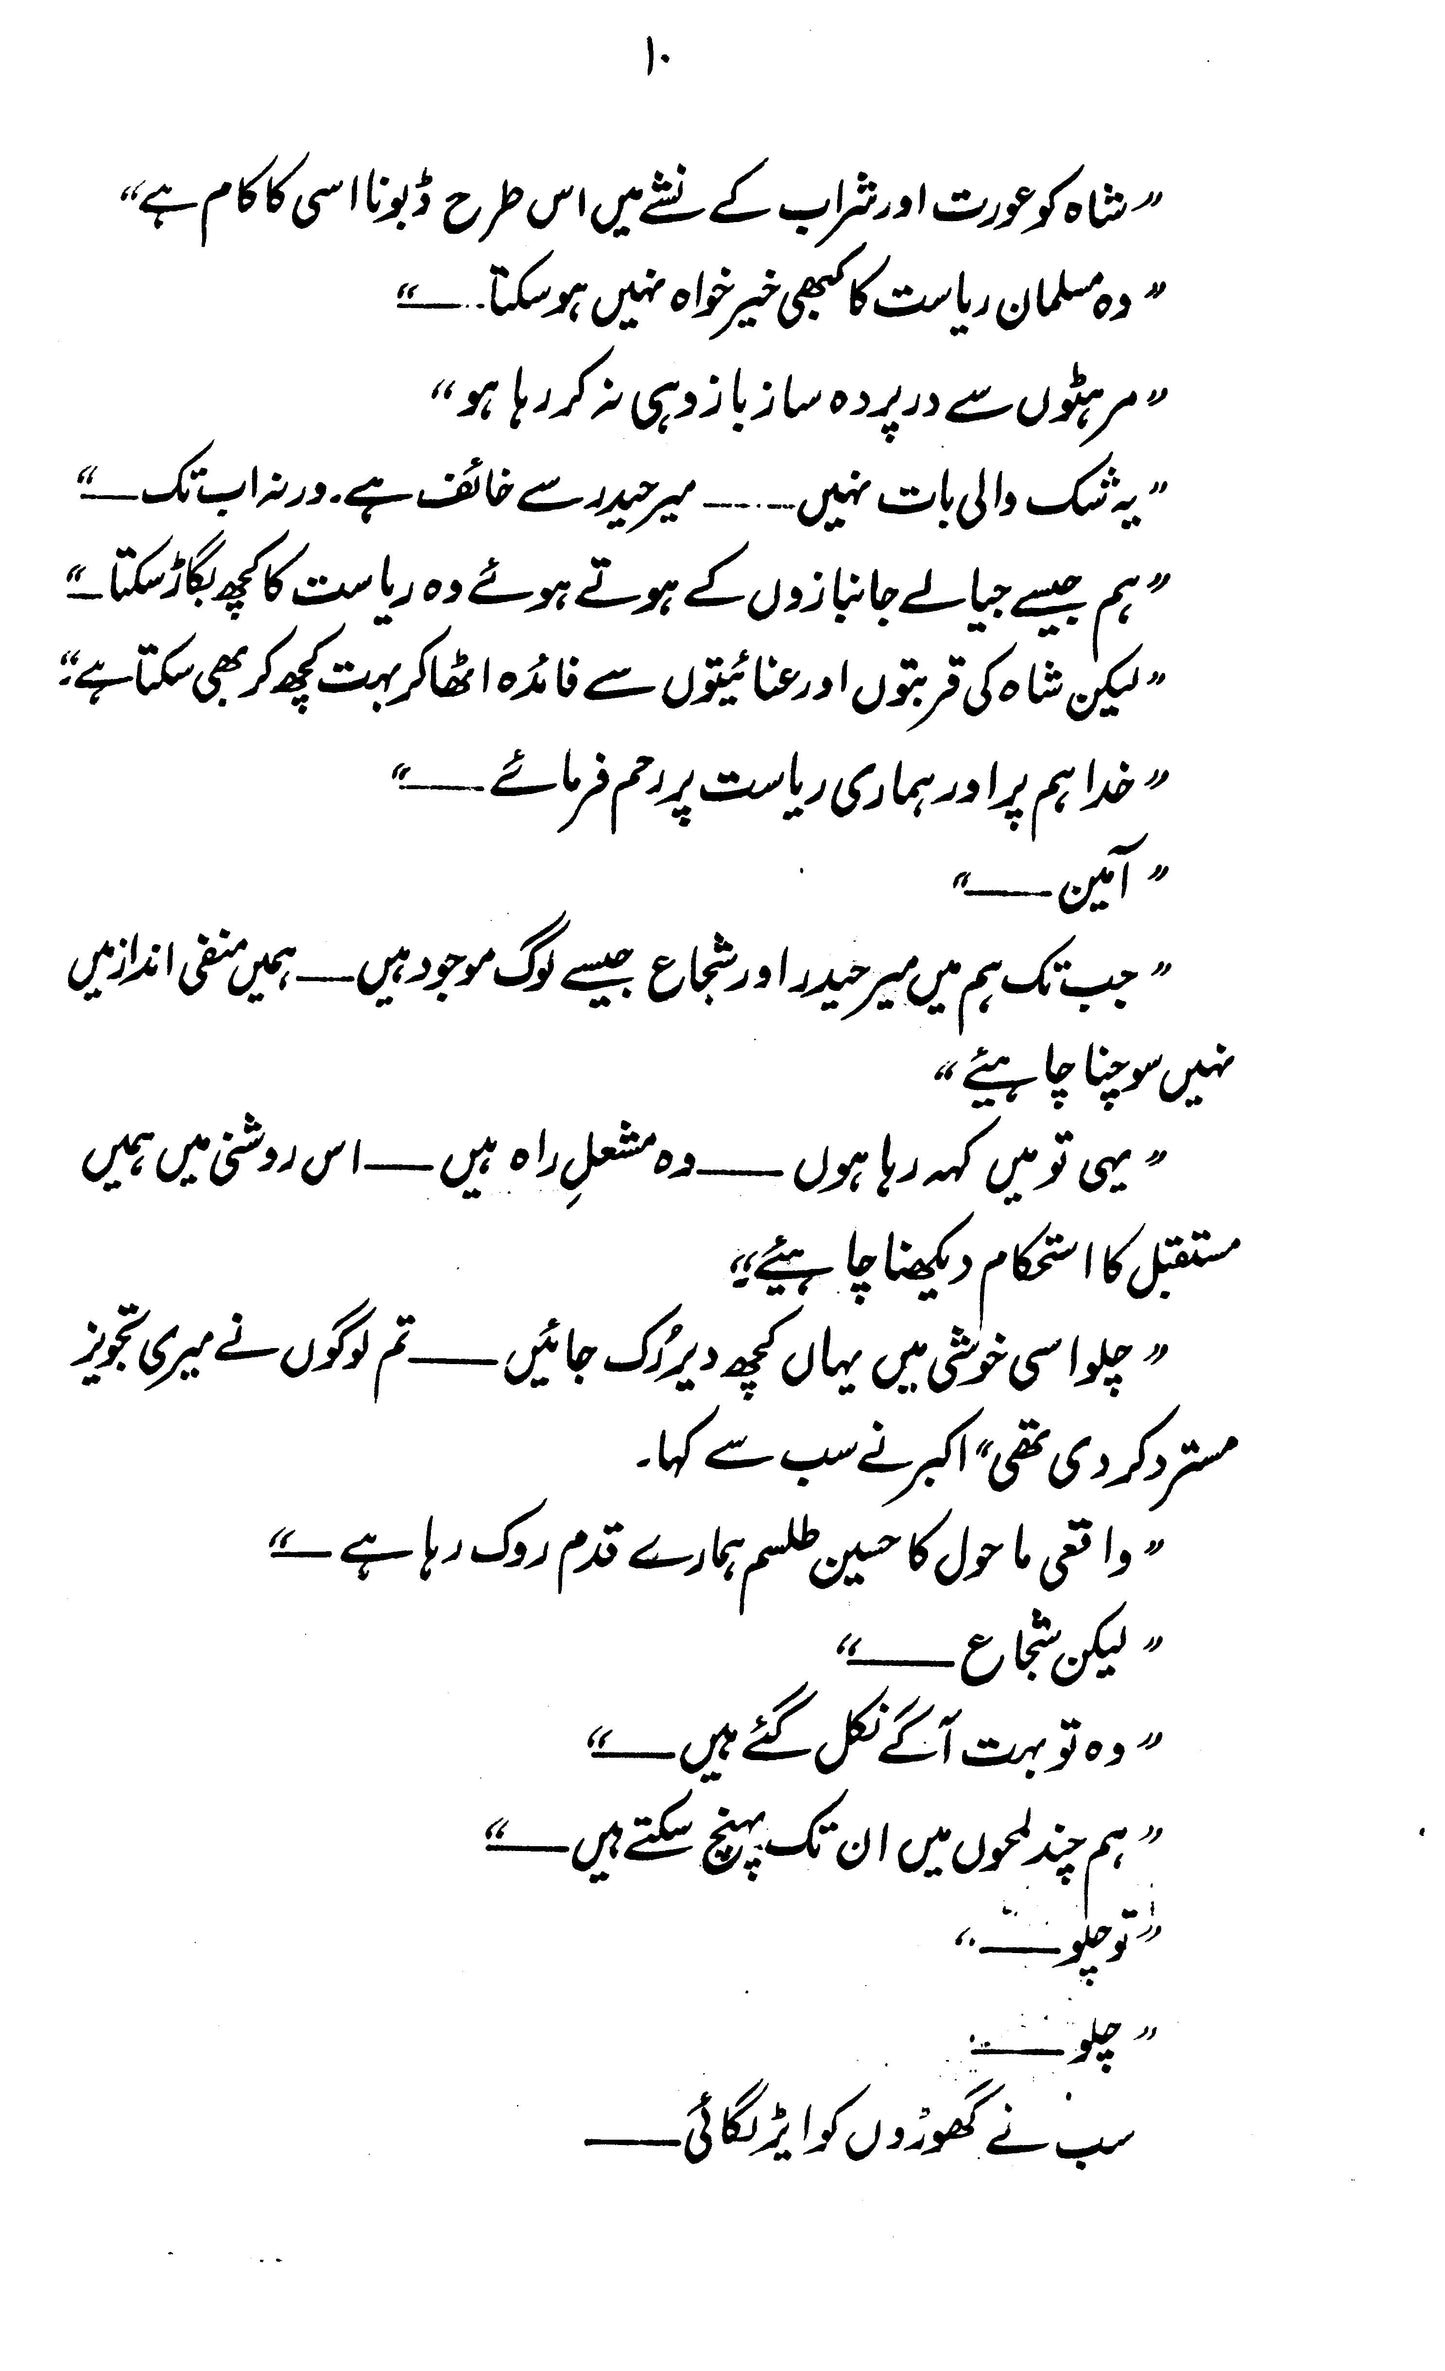 ۱۰
”شاہ کو عورت اور شراب کے نشے میں اس طرح ڈبونا اسی کا کام ہے“
”وہ مسلمان ریاست کا کبھی خیر خواہ نہیں ہو سکتا۔۔۔“
”مرہٹوں سے در پردہ ساز باز وہی نہ کر رہا ہو“
”یہ شک والی بات نہیں۔۔۔۔ میر حیدر سے خائف ہے۔ ورنہ اب تک ——“
”ہم جیسے جیالے جانبازوں کے ہوتے ہوئے وہ ریاست کا کچھ بگاڑ سکتا —“
”لیکن شاہ کی قربتوں اور عنائیتوں سے فائدہ اٹھا کر بہت کچھ کر بھی سکتا ہے۔“
”خدا ہم پر اور ہماری ریاست پر رحم فرمائے ——“
”آمین ——“
”جب تک ہم میں میر حیدر اور شجاع جیسے لوگ موجود ہیں —— ہمیں منفی انداز میں
نہیں سوچنا چاہیئے“
”یہی تو میں کہہ رہا ہوں —— وہ مشعلِ راہ ہیں —— اس روشنی میں ہمیں
مستقبل کا استحکام دیکھنا چاہیئے۔“
”چلو اسی خوشی میں یہاں کچھ دیر رُک جائیں —— تم لوگوں نے میری تجویز
مسترد کر دی تھی“ اکبر نے سب سے کہا۔
”واقعی ماحول کا حسین طلسم ہمارے قدم روک رہا ہے ——“
”لیکن شجاع ——“
”وہ تو بہت آگے نکل گئے ہیں ——“
”ہم چند لمحوں میں ان تک پہنچ سکتے ہیں ——“
”تو چلو ——“
”چلو ——
سب نے گھوڑوں کو ایڑ لگائی ——